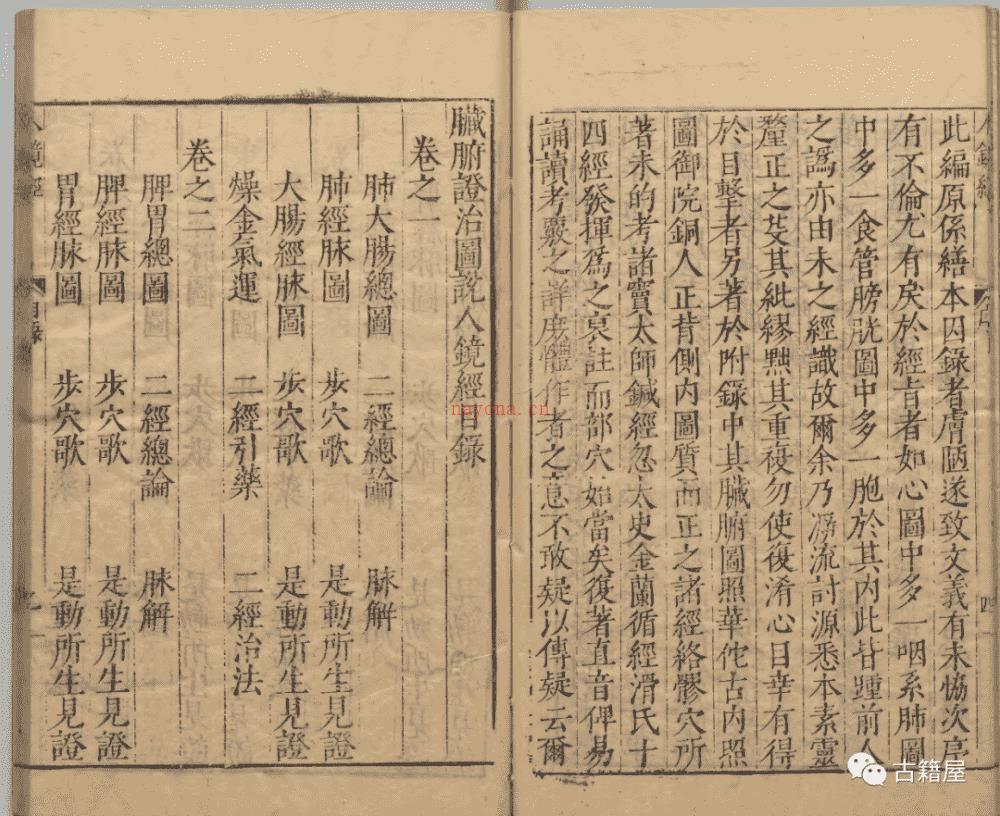 此編原係繕本因錄者膚陋遂致文義有未恊次序
有不倫尤有戾於經旨者如心圖中多一咽系肺圖
中多一食管膀胱圖中多一胞於其內此皆踵前人
之譌亦由未之經識故爾余乃溯流討源悉本素靈
釐正之芟其紕繆黜其重複勿使復淆心目幸有得
於目擊者另著於附錄中其臟腑圖照華佗古內照
圖御院銅人正背側內圖質而正之諸經絡髎穴所
著未的考諸竇太師鍼經忽太史金蘭循經滑氏十
四經發揮爲之裒註而部穴始當矣復著直音俾易
誦讀考覈之詳庶體作者之意不敢疑以傳疑云爾
臟腑證治圖說人鏡經目錄
卷之一
肺大腸總圖 二經總論 脉解
肺經脉圖 步穴歌 是動所生見證
大腸經脉圖 步穴歌 是動所生見證
燥金氣運 二經引藥 二經治法
卷之二
脾胃總圖 二經總論 脉解
脾經脉圖 步穴歌 是動所生見證
胃經脉圖 步穴歌 是動所生見證
人鏡經 目錄
nayona.cn
古籍屋